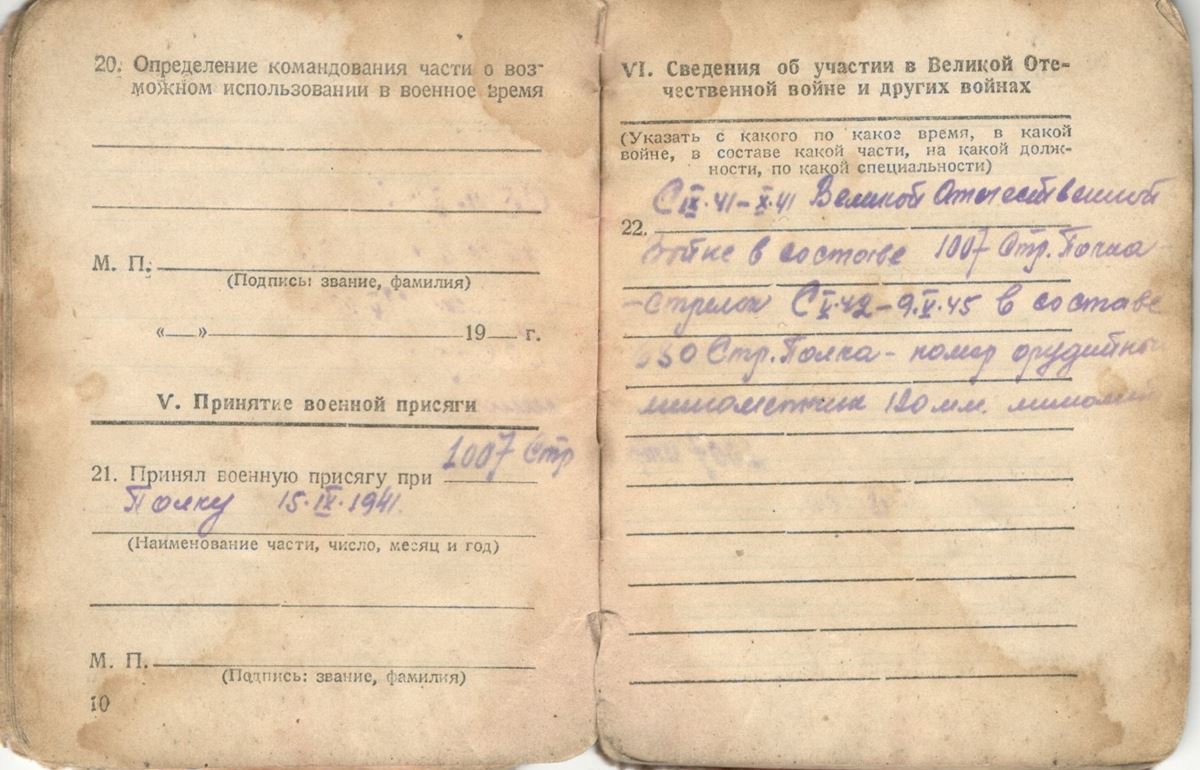 20. Определение командования части о воз-
можном использовании в военное время
М. П.
(Подпись: звание, фамилия)
«__»__________19__ г.
V. Принятие военной присяги
21. Принял военную присягу при 1007 Стр
Полку 15.IX.1941.
(Наименование части, число, месяц и год)
М. П.
(Подпись: звание, фамилия)
10
VI. Сведения об участии в Великой Оте-
чественной войне и других войнах
(Указать с какого по какое время, в какой
войне, в составе какой части, на какой долж-
ности, по какой специальности)
С IX.41-X.41 Великой Отечественной
22.
войне в составе 1007 Стр. Полка -
- стрелок С V.42-9.V.45 в составе
Стр. Полка - номер орудийный
минометчик 120 мм.